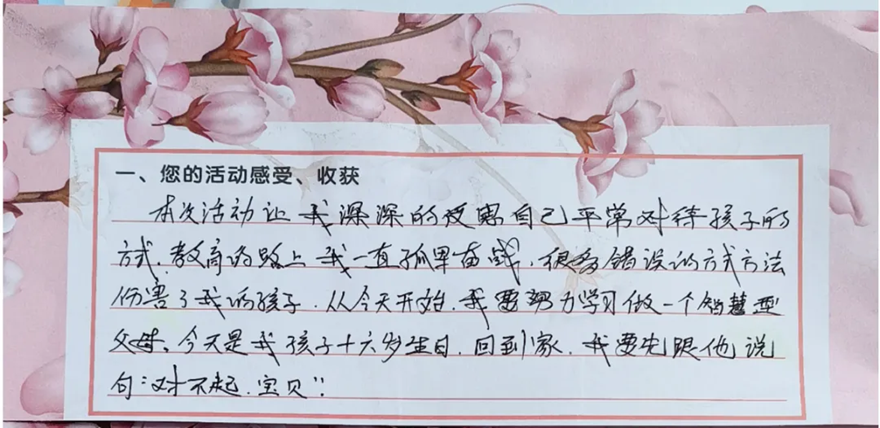 一、您的活动感受、收获
本次活动让我深深的反思自己平常对待孩子的
方式.教育的路上我一直孤单奋战.很多错误的方式方法
伤害了我的孩子.从今天开始.我要努力学习做一个智慧型
父母、今天是我孩子十六岁生日.回到家.我要先跟他说
句:"对不起.宝贝"!